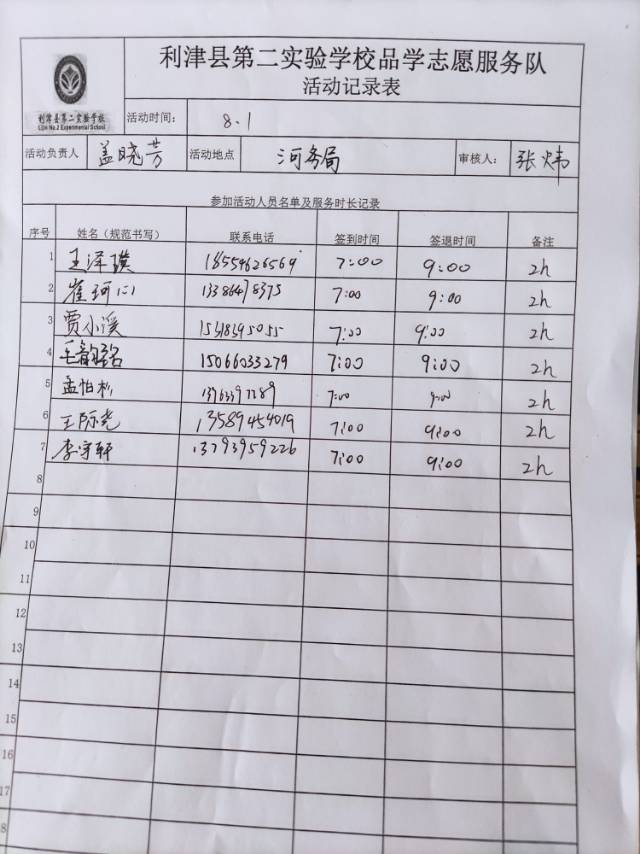 利津县第二实验学校品学志愿服务队
活动记录表
利津县第二实验学校
LiJin No.2 Experimental School
活动时间： 8.1
活动负责人 盖晓芳 活动地点 河务局 审核人： 张炜
参加活动人员名单及服务时长记录
序号 姓名（规范书写） 联系电话 签到时间 签退时间 备注
1 王泽璞 18554626569 7:00 9:00 2h
2 崔珂心 13386478375 7:00 9:00 2h
3 贾小溪 7:00 9:00 2h
4 15066033279 7:00 9:00 2h
5 孟怕彬 7:00 9:00 2h
6 王际尧 13589454019 7:00 9:00 2h
7 李宇轩 13793959226 7:00 9:00 2h
8
9
10
11
12
13
14
15
16
17